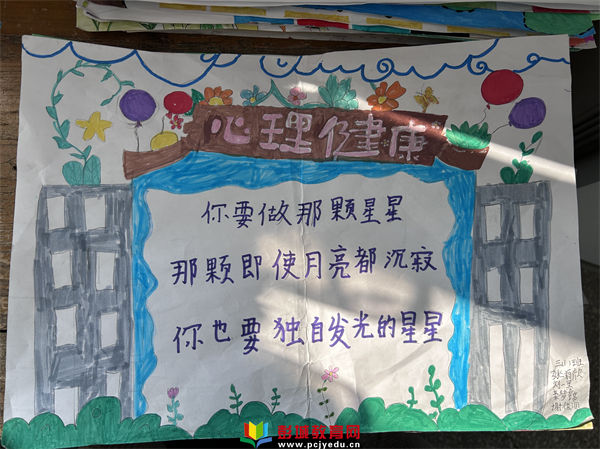 心理健康
你要做那颗星星
那颗即使月亮都沉寂
你也要独自发光的星星
三(1)班
彭城教育网
www.pcjyedu.cn